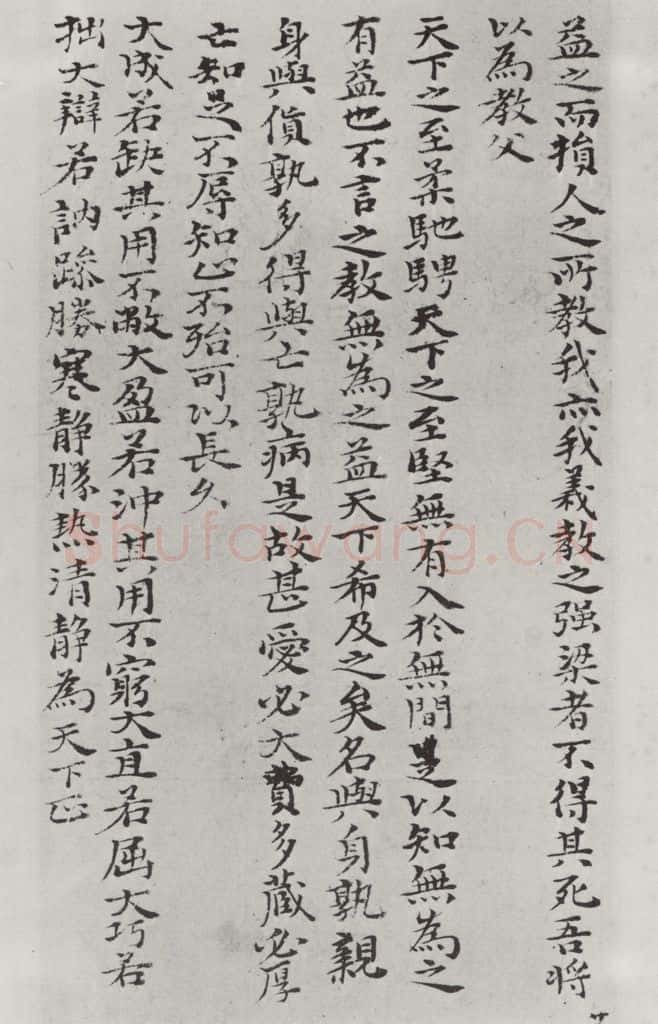 益之而損人之所教我亦我義教之强梁者不得其死吾將
以為教父
天下之至柔馳騁天下之至堅無有入於無間是以知無為之
有益也不言之教無為之益天下希及之矣名與身孰親
身與貨孰多得與亡孰病是故甚愛必大費多藏必厚
亡知足不辱知止不殆可以長久
大成若缺其用不敝大盈若沖其用不窮大直若屈大巧若
拙大辯若訥躁勝寒靜勝熱清靜為天下正
Shufawang.CN